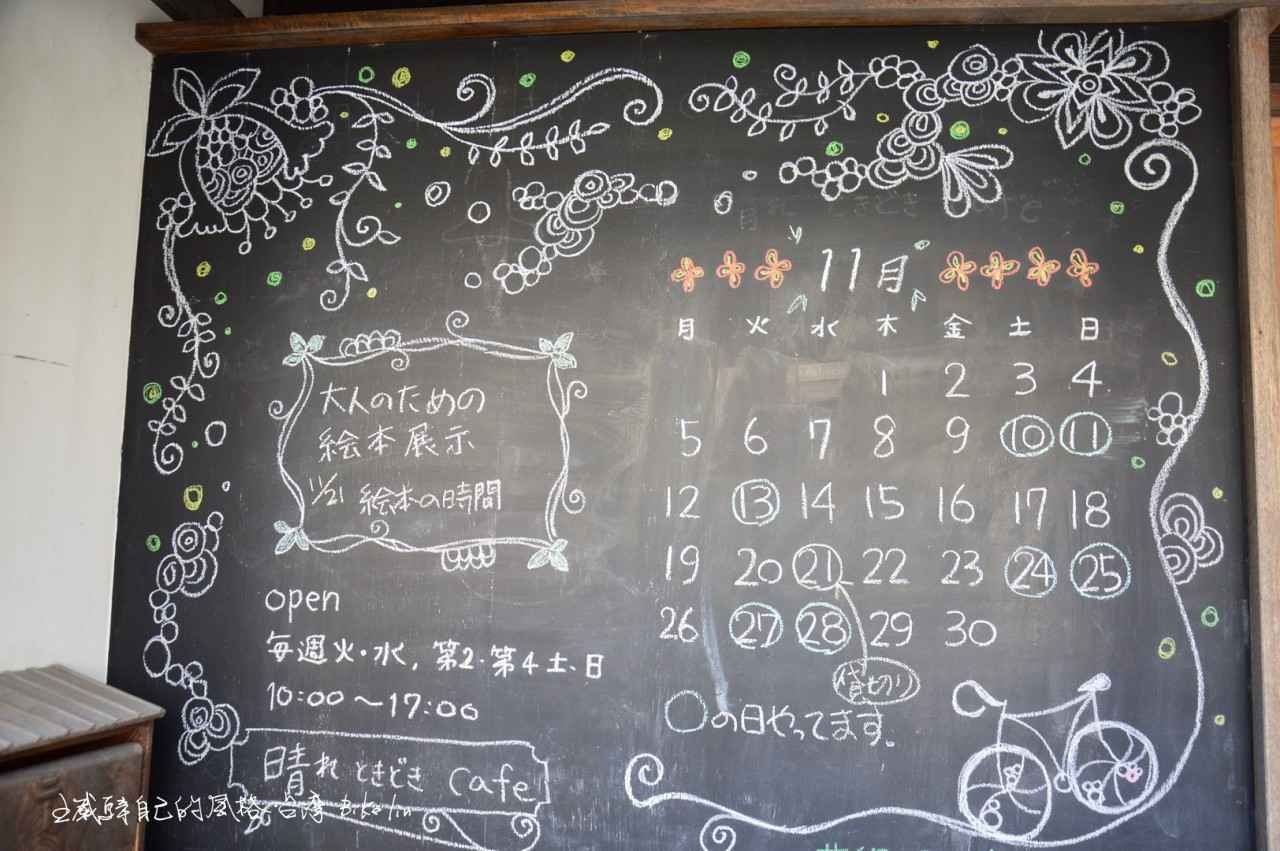 11月
月 火 水 木 金 土 日
1 2 3 4
5 6 7 8 9 10 11
12 13 14 15 16 17 18
19 20 21 22 23 24 25
26 27 28 29 30
貸切り
○の日やってます。
大人のための
絵本展示
11/21 絵本の時間
open
毎週火・水,第2・第4土、日
10:00〜17:00
晴れときどき cafe
自己的風格